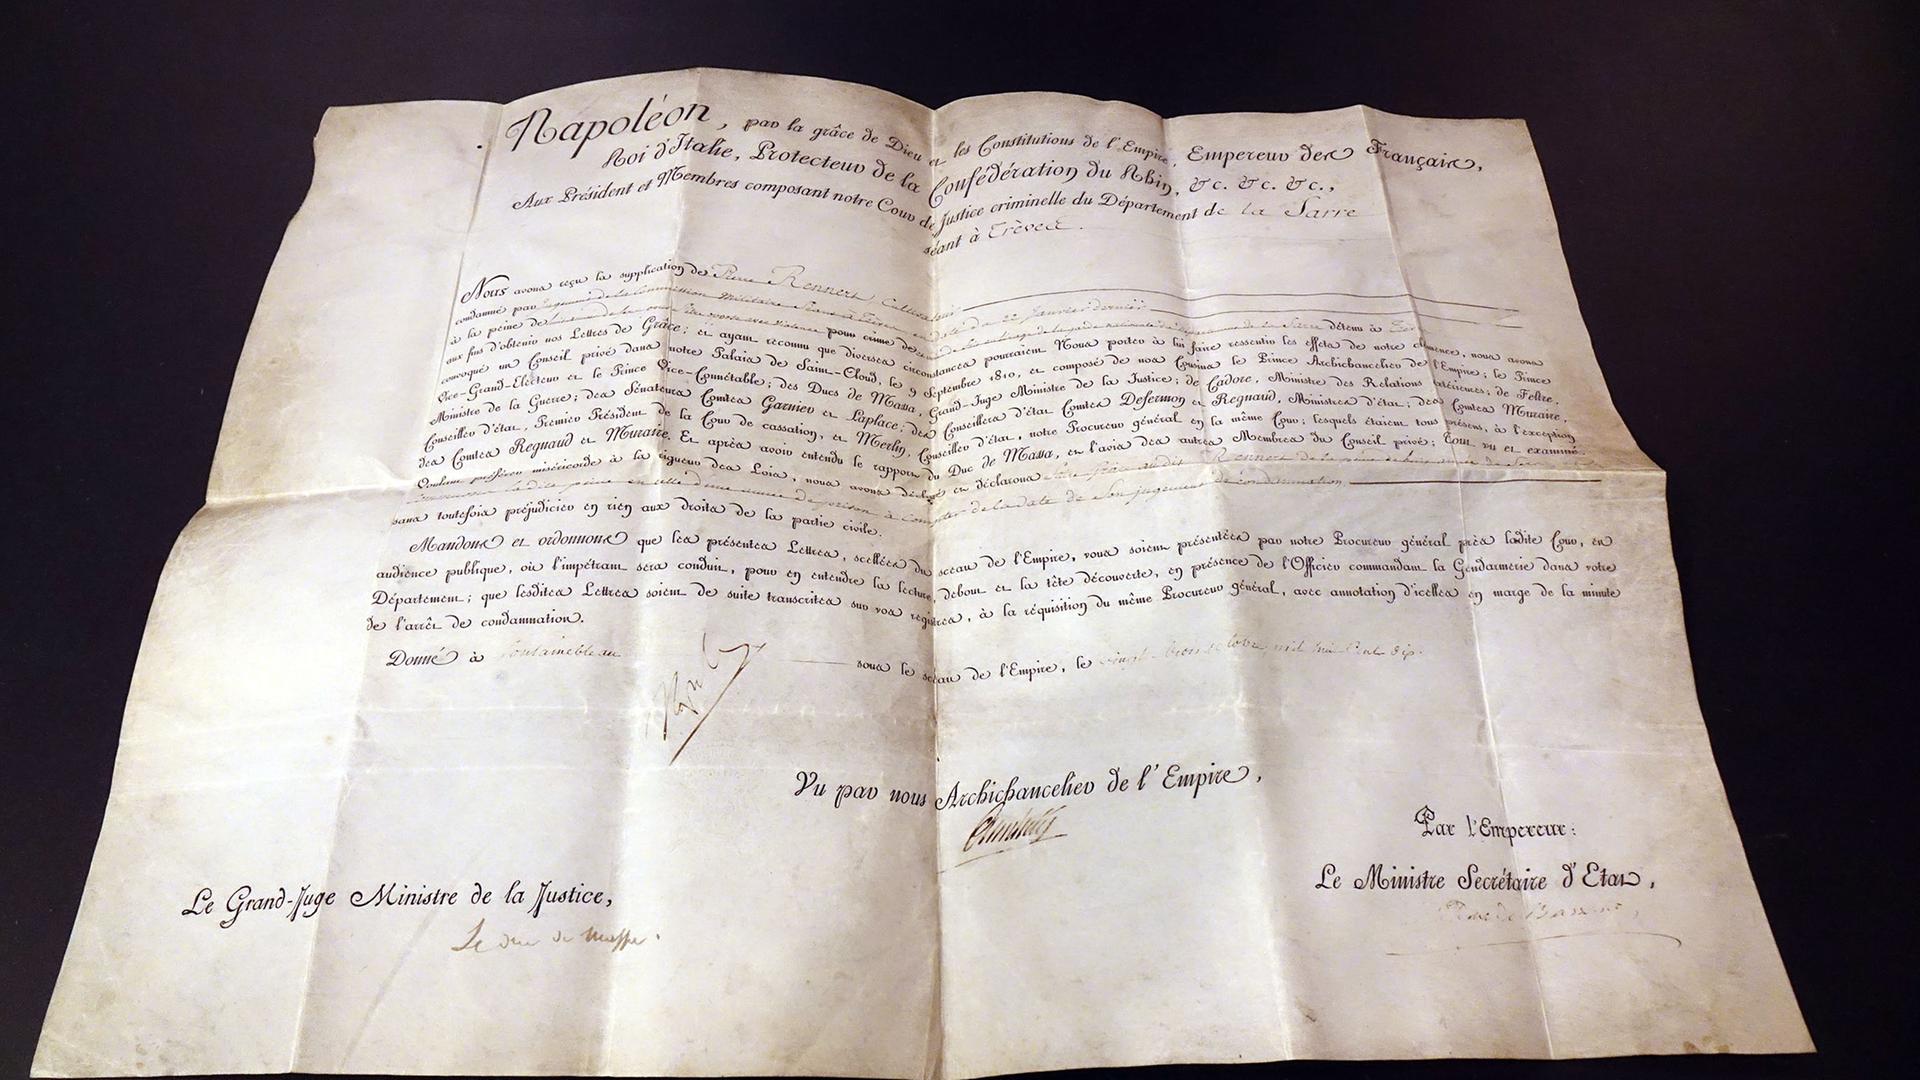 Napoléon, par la grâce de Dieu et les Constitutions de l'Empire, Empereur des Français,
Roi d'Italie, Protecteur de la Confédération du Rhin, &c. &c. &c.,
Aux Président et Membres composant notre Cour de Justice criminelle du Département de la Sarre
séant à Trèves.
Nous avons reçu la supplication de Pierre Rennert, Cultivateur
condamné par jugement de la Commission Militaire séant à Trèves en date du 22 Janvier dernier
à la peine de pour crime de de la garde nationale du département de la Sarre détenu à
aux fins d'obtenir nos Lettres de Grâce; et ayant reconnu que diverses circonstances pourraient Nous porter à lui faire ressentir les effets de notre clémence, nous avons
convoqué un Conseil privé dans notre Palais de Saint-Cloud, le 9 Septembre 1810, et composé de nos Cousins le Prince Archichancelier de l'Empire; le Prince
Vice-Grand-Electeur et le Prince Vice-Connétable; des Ducs de Massa, Grand-Juge Ministre de la Justice; de Cadore, Ministre des Relations extérieures; de Feltre,
Ministre de la Guerre; des Sénateurs Comtes Garnier et Laplace; des Conseillers d'état Comtes Defermon et Regnaud, Ministres d'état; des Comtes Muraire,
Conseiller d'état, Premier Président de la Cour de cassation, et Merlin, Conseiller d'état, notre Procureur général en la même Cour; lesquels étaient tous présens, à l'exception
des Comtes Regnaud et Muraire. Et après avoir entendu le rapport du Duc de Massa, et l'avis des autres Membres du Conseil privé; tout vu et examiné.
Voulant préférer miséricorde à la rigueur des Lois, nous avons déclaré et déclarons faire grâce audit Rennert de la peine de
commuons ladite peine en celle d'une année de prison à compter de la date de son jugement de condamnation,
sans toutefois préjudicier en rien aux droits de la partie civile.
Mandons et ordonnons que les présentes Lettres, scellées du sceau de l'Empire, vous soient présentées par notre Procureur général près ladite Cour, en
audience publique, où l'impétrant sera conduit, pour en entendre la lecture, debout et la tête découverte, en présence de l'Officier commandant la Gendarmerie dans votre
Département; que lesdites Lettres soient de suite transcrites sur vos registres, à la réquisition du même Procureur général, avec annotation d'icelles en marge de la minute
de l'arrêt de condamnation.
Donné à Fontainebleau sous le sceau de l'Empire, le vingt trois octobre mil huit Cent dix.
Vu par nous Archichancelier de l'Empire,
Par l'Empereur:
Le Ministre Secrétaire d'Etat,
Le Duc de Bassano,
Le Grand-Juge Ministre de la Justice,
Le duc de Massa.